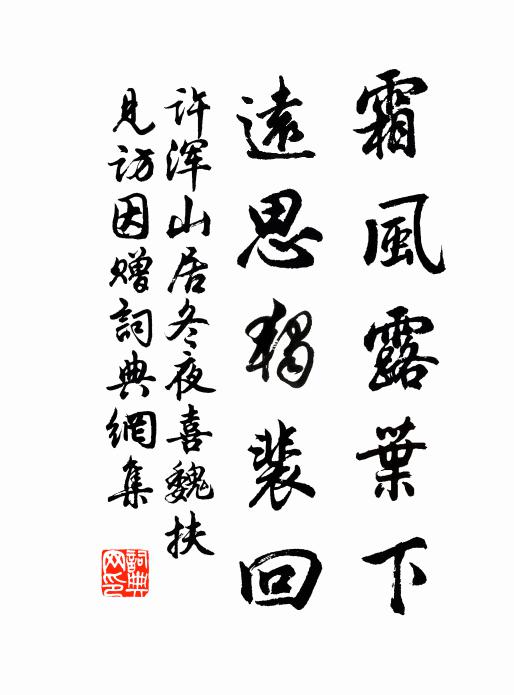 霜風露葉下
遠思獨裴回
许浑山居冬夜喜魏扶
見访因赠詞典網集
詞典網印